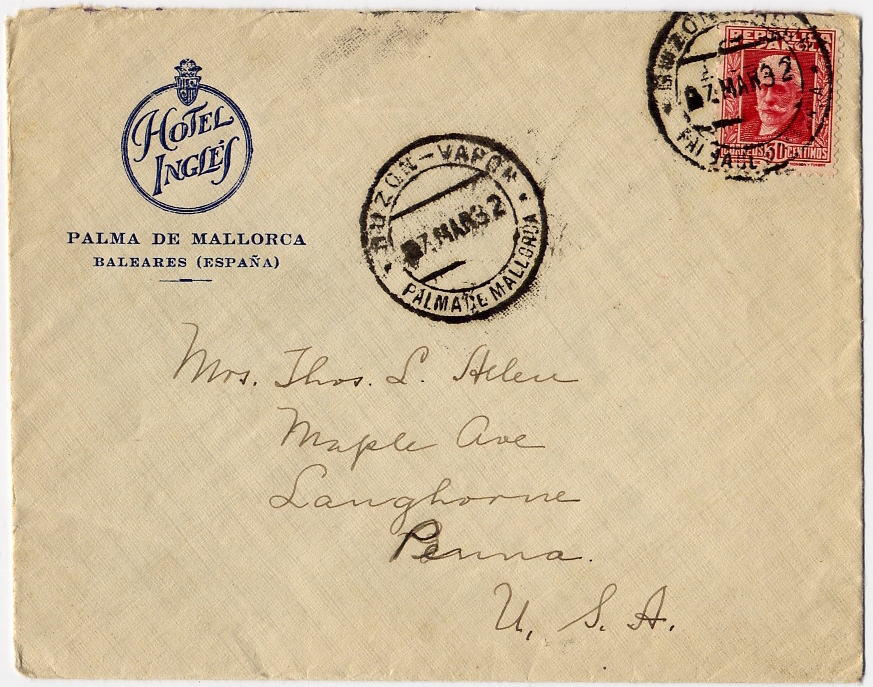 HOTEL
INGLÉS
PALMA DE MALLORCA
BALEARES (ESPAÑA)
BUZON-VAPOR
07.MAR32
PALMA DE MALLORCA
BUZON
7.MAR32
CORREOS 30 CENTIMOS
Mrs. Thos. L. Allen
Maple Ave
Langhorne
Penna.
U. S. A.